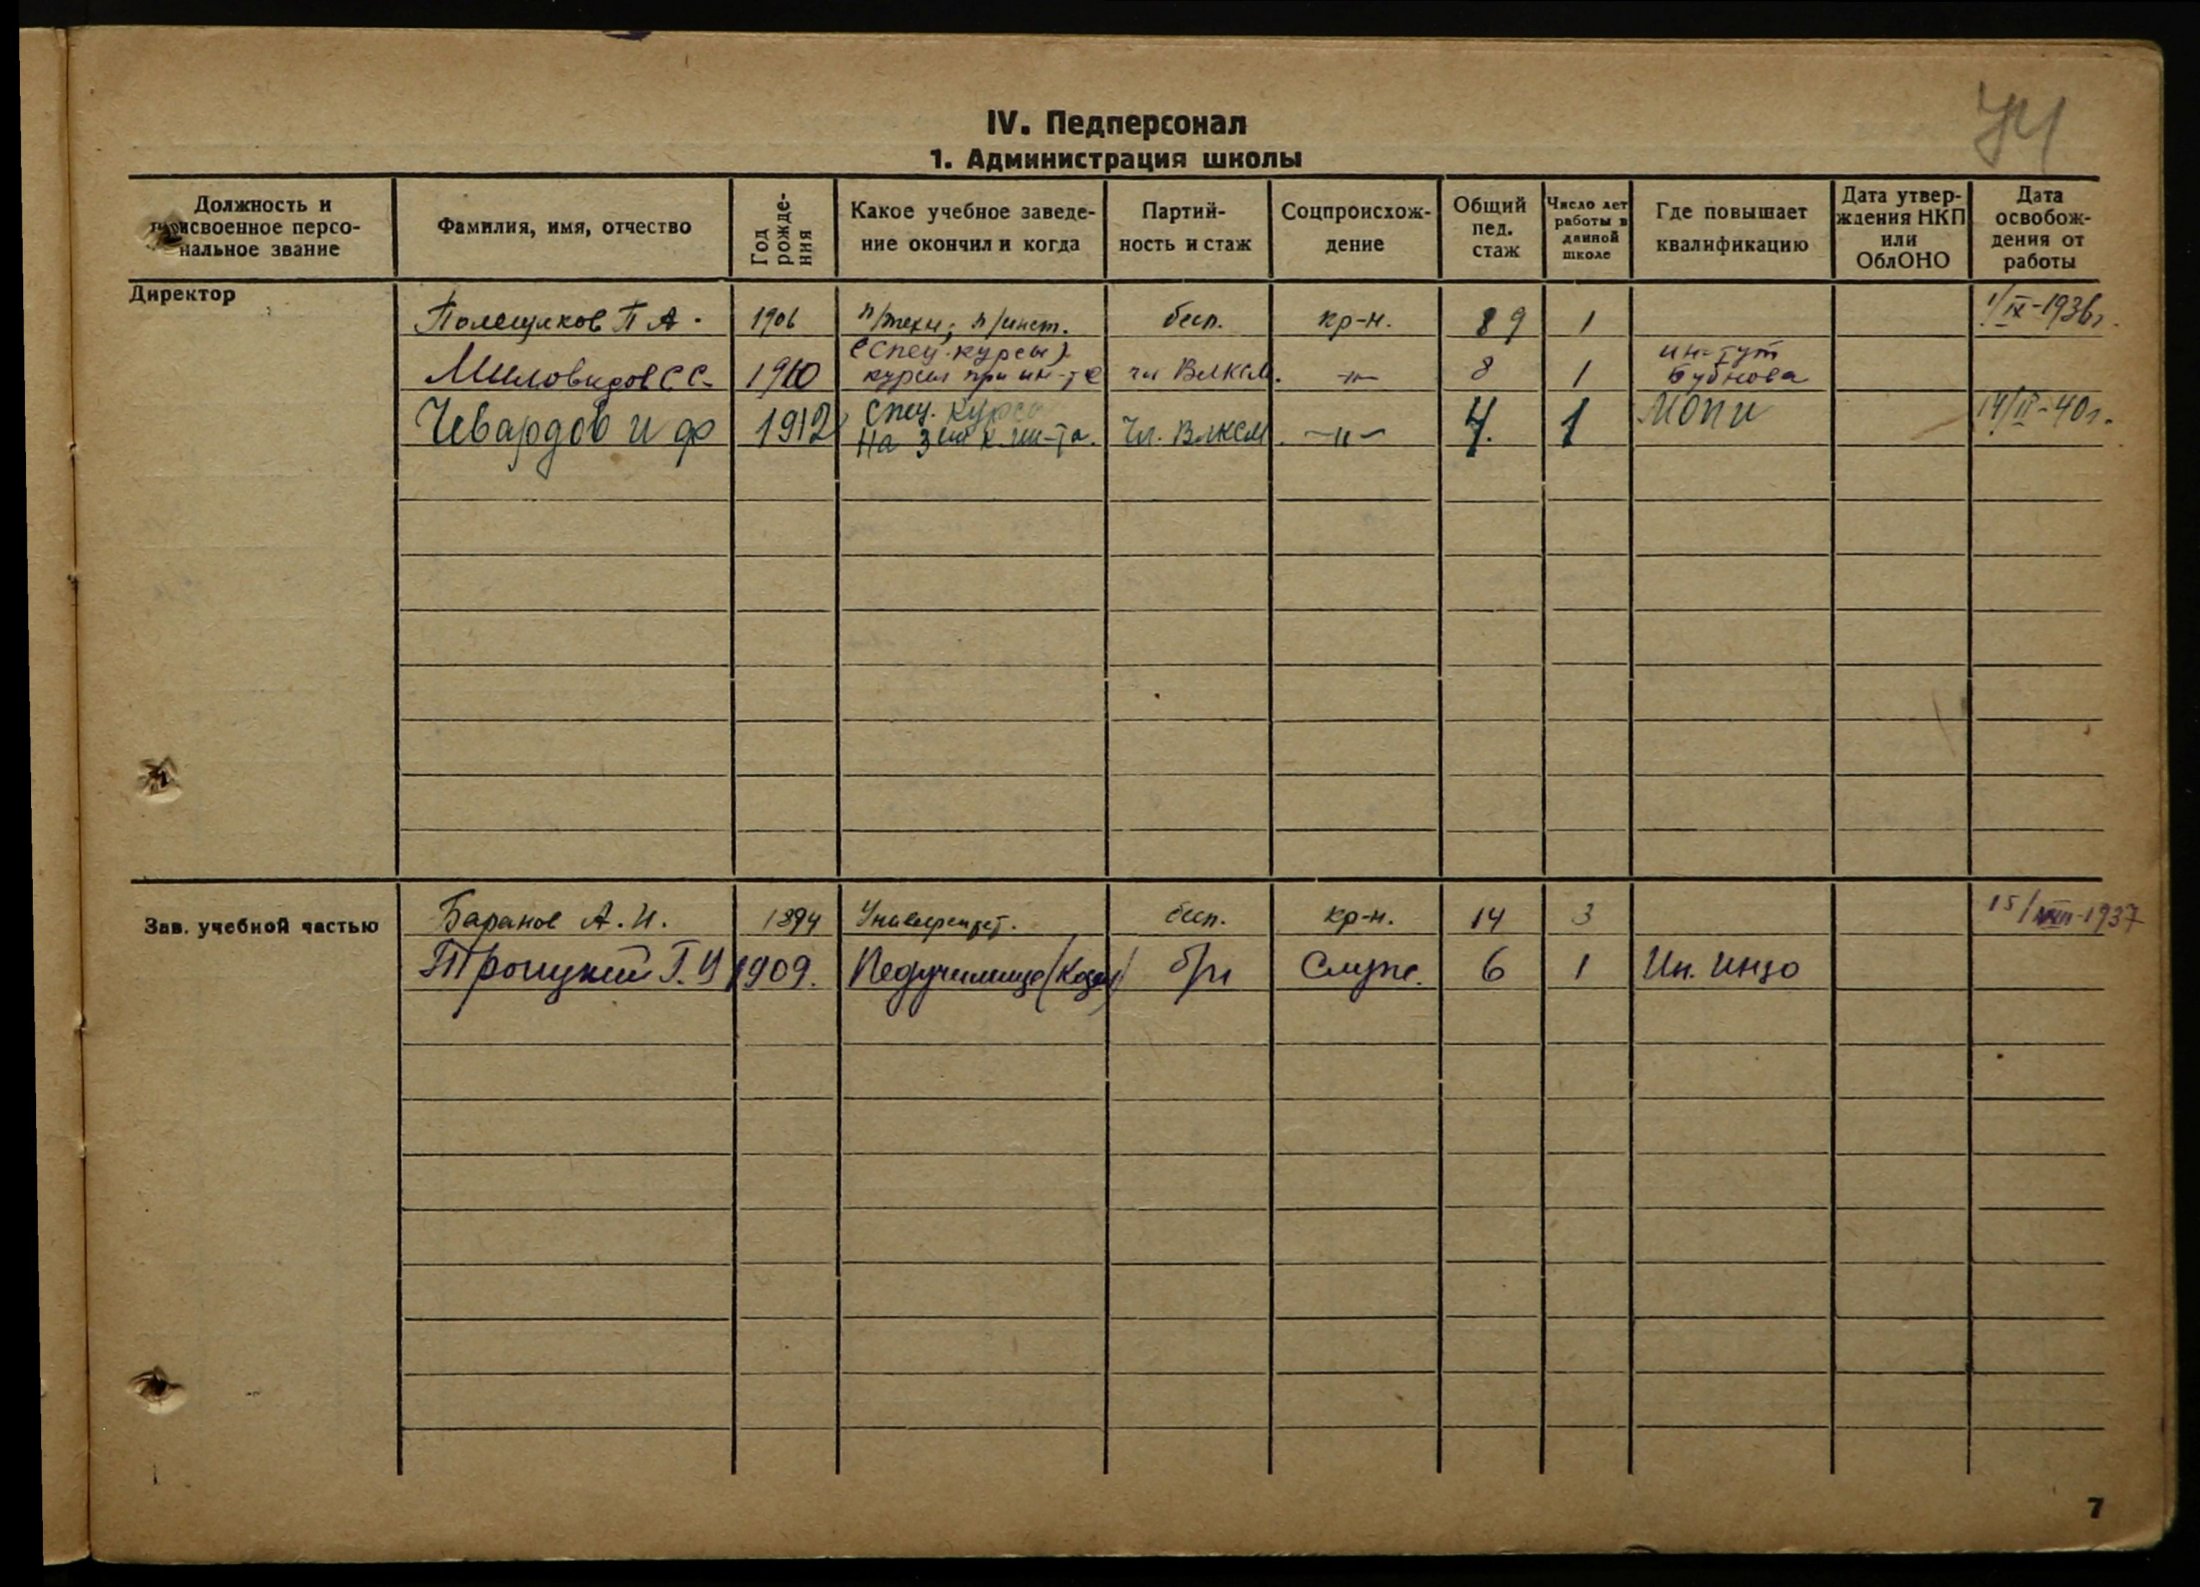 74
IV. Педперсонал
1. Администрация школы
Должность и присвоенное персональное звание
Фамилия, имя, отчество
Год рождения
Какое учебное заведение окончил и когда
Партийность и стаж
Соцпроисхождение
Общий пед. стаж
Число лет работы в данной школе
Где повышает квалификацию
Дата утверждения НКП или ОблОНО
Дата освобождения от работы
Директор
Полещуков П А. 1906 п/техн; п/инст. бесп. кр-н. 89 1 1/IX-1936г.
Миловидов С С. 1910 (Спец. курсы) курсы при ин-те чл ВЛКСМ. -"- 8 1 ин-тут Бубнова
Чевардов И Ф 1912 Спец. курсы На 3 ин-та. Чл. ВЛКСМ -"- 4. 1 МОПИ 14/II-40г.
Зав. учебной частью
Баранов А. И. 1894 Университет. бесп. кр-н. 14 3 15/VIII-1937
Троицкий Г. И 1909. Педучилище б/п Служ. 6 1 Ин. ИНЗО
7